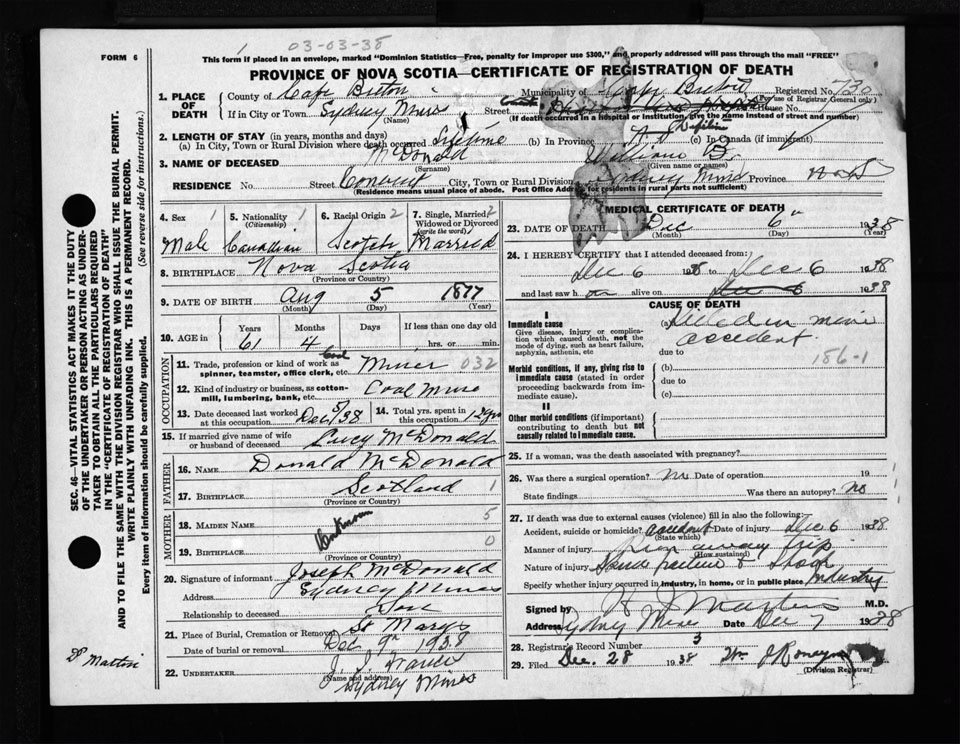 03-03-38
FORM 6
This form if placed in an envelope, marked "Dominion Statistics—Free, penalty for improper use $300," and properly addressed will pass through the mail "FREE"
PROVINCE OF NOVA SCOTIA—CERTIFICATE OF REGISTRATION OF DEATH
1. PLACE OF DEATH
County of Cape Breton
Municipality of Cape Breton
Registered No.
(For use of Registrar General only)
If in City or Town Sydney Mines
(Name)
Street
House No.
(If death occurred in a hospital or institution, give the name instead of street and number)
2. LENGTH OF STAY (in years, months and days)
(a) In City, Town or Rural Division where death occurred Lifetime (b) In Province (c) In Canada (if immigrant)
3. NAME OF DECEASED McDonald William
(Surname) (Given name or names)
RESIDENCE No. Street Convent City, Town or Rural Division Sydney Mines Province
(Residence means usual place of abode. Post Office Address for residents in rural parts not sufficient)
4. Sex 1
Male
5. Nationality 1
(Citizenship)
Canadian
6. Racial Origin 2
Scotch
7. Single, Married, 2
Widowed or Divorced
(write the word)
Married
8. BIRTHPLACE Nova Scotia
(Province or Country)
9. DATE OF BIRTH Aug 5 1877
(Month) (Day) (Year)
10. AGE in
Years Months Days If less than one day old
61 4 hrs. or min.
OCCUPATION
11. Trade, profession or kind of work as Miner 032
spinner, teamster, office clerk, etc.
12. Kind of industry or business, as cotton-
mill, lumbering, bank, etc. Coal Mine
13. Date deceased last worked
at this occupation Dec 5/38
14. Total yrs. spent in
this occupation
15. If married give name of wife
or husband of deceased Lucy McDonald
FATHER
16. NAME Donald McDonald
17. BIRTHPLACE Scotland 1
(Province or Country)
MOTHER
18. MAIDEN NAME Unknown 5
19. BIRTHPLACE 0
(Province or Country)
20. Signature of informant Joseph McDonald
Address Sydney Mines
Relationship to deceased Son
21. Place of Burial, Cremation or Removal St Marys
Date of burial or removal Dec. 9th 1938
22. UNDERTAKER
(Name and address)
Sydney Mines
MEDICAL CERTIFICATE OF DEATH
23. DATE OF DEATH Dec 6th 1938
(Month) (Day) (Year)
24. I HEREBY CERTIFY that I attended deceased from:
Dec 6 1938 to Dec 6 1938
and last saw h alive on Dec 6 1938
CAUSE OF DEATH
I
Immediate cause
Give disease, injury or complica-
tion which caused death, not the
mode of dying, such as heart failure,
asphyxia, asthenia, etc
(a) Killed in mine
accident
due to
186-1
Morbid conditions, if any, giving rise to
immediate cause (stated in order
proceeding backwards from im-
mediate cause).
(b)
due to
(c)
II
Other morbid conditions (if important)
contributing to death but not
causally related to immediate cause.
25. If a woman, was the death associated with pregnancy?
26. Was there a surgical operation? No Date of operation 19
State findings Was there an autopsy? No
27. If death was due to external causes (violence) fill in also the following:
Accident, suicide or homicide? accident Date of injury Dec 6 1938
(State which)
Manner of injury run away trip
(How sustained)
Nature of injury
Specify whether injury occurred in industry, in home, or in public place Industry
Signed by M.D.
Address Sydney Mines Date Dec 7 1938
28. Registrar's Record Number 3
29. Filed Dec. 28 1938
(Division Registrar)
SEC. 46—VITAL STATISTICS ACT MAKES IT THE DUTY
OF THE UNDERTAKER OR PERSON ACTING AS UNDER-
TAKER TO OBTAIN ALL THE PARTICULARS REQUIRED
IN THE "CERTIFICATE OF REGISTRATION OF DEATH"
AND TO FILE THE SAME WITH THE DIVISION REGISTRAR WHO SHALL ISSUE THE BURIAL PERMIT.
WRITE PLAINLY WITH UNFADING INK. THIS IS A PERMANENT RECORD.
Every item of information should be carefully supplied. (See reverse side for instructions.)
Dr Martin